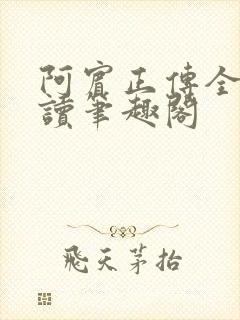 阿賓正傳全
讀筆趣閣
飛天茅抬